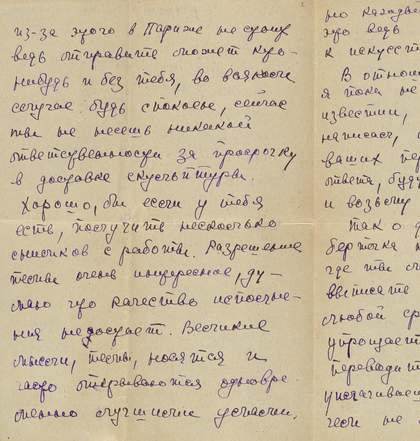 из-за этого в Париже не
ведь отправить может кто-
нибудь и без тебя, во всяком
случае будь спокоен, сейчас
ты не несешь никакой
ответственности за просрочку
в доставке скульптуры.
Хорошо, бы если у тебя
есть, получить несколько
снимков с работы. Разрешение
темы очень интересное, ду-
маю что качество исполне-
ния не Великие
мысли, темы, носятся и
часто открываются одновре-
менно лучшими умами.
но
это ведь
к искусст
В отнош
я пока не
известии,
написать,
ваших пер
ответа, буд
и возьму
Так о д
бертажа
где ты
ввысяте
любой ср
упрощает
переводит
устаивает
если не